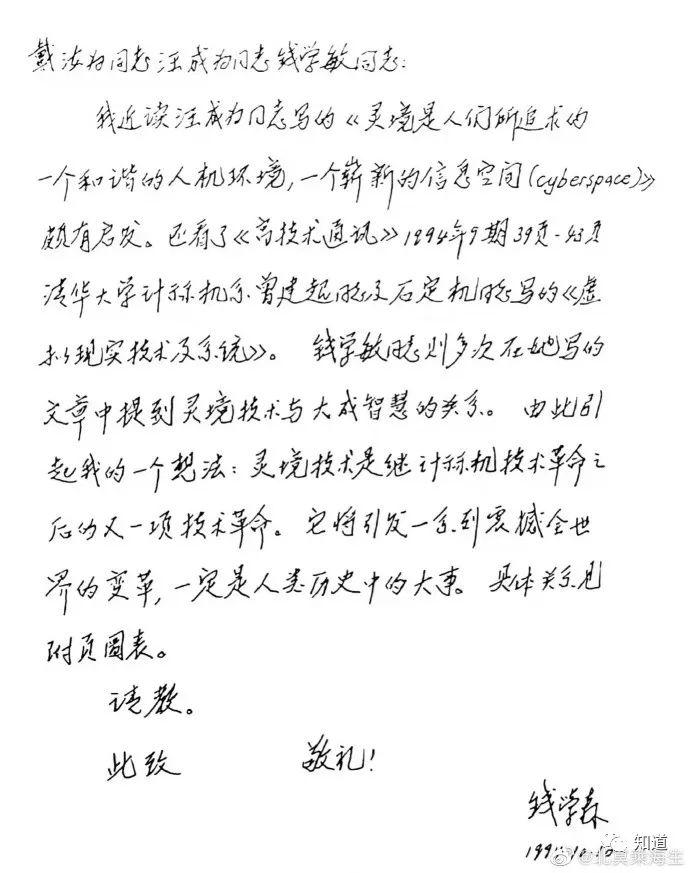 戴汝为同志汪成为同志钱学敏同志:
我近读汪成为同志写的《灵境是人们所追求的
一个和谐的人机环境,一个崭新的信息空间(cyberspace)》
颇有启发。还看了《高技术通讯》1994年9期39页-43页
清华大学计祘机系曾建超同志及石定机同志写的《虚
拟现实技术及系统》。 钱学敏同志则多次在她写的
文章中提到灵境技术与大成智慧的关系。 由此引
起我的一个想法:灵境技术是继计祘机技术革命之
后的又一项技术革命。它将引发一系列震撼全世
界的变革,一定是人类历史中的大事。 具体关系见
附页圖表。
请教。
此致 敬礼!
钱学森
知道
1994.10.10
@北冥乘海生